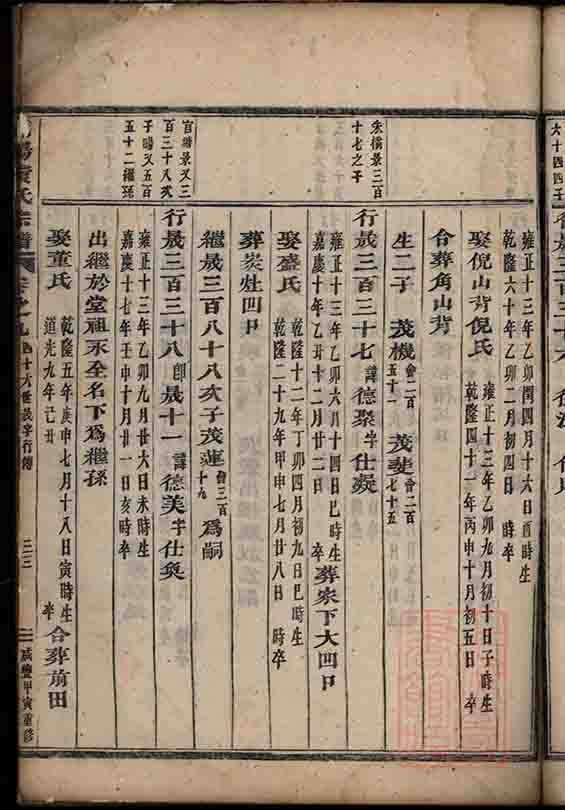 大十四四子
雍正十三年乙卯閏四月十六日酉時生
乾隆六十年乙卯二月初四日 時卒
娶倪山背倪氏
雍正十三年乙卯九月初十日子時生
乾隆四十一年丙申十月初五日 卒
合葬角山背
生二子 茂機會二百五十一 茂斐會二百七十五
朱橋景三百
十七之子
行晟三百三十七諱德聚字仕凝
雍正十三年乙卯六月十四日巳時生
嘉慶十年乙丑十二月廿二日 卒
葬塚下大凹口
娶盛氏
乾隆十二年丁卯四月初九日巳時生
乾隆二十九年甲申七月廿八日 時卒
葬炭灶凹口
繼晟三百八十八次子茂蓮會三百十九為嗣
官塘景又三
百三十八次
子暘又五百
五十二繼孫
行晟三百三十八即晟十一諱德美字仕奐
雍正十三年乙卯九月廿六日未時生
嘉慶十七年壬申十月廿一日亥時卒
出繼於堂祖永全名下為繼孫
娶董氏
乾隆五年庚申七月十八日寅時生
道光九年己丑 卒
合葬前田
氏宗譜 卷之九 四十六世晟字行傳 三三 咸豐甲寅重修